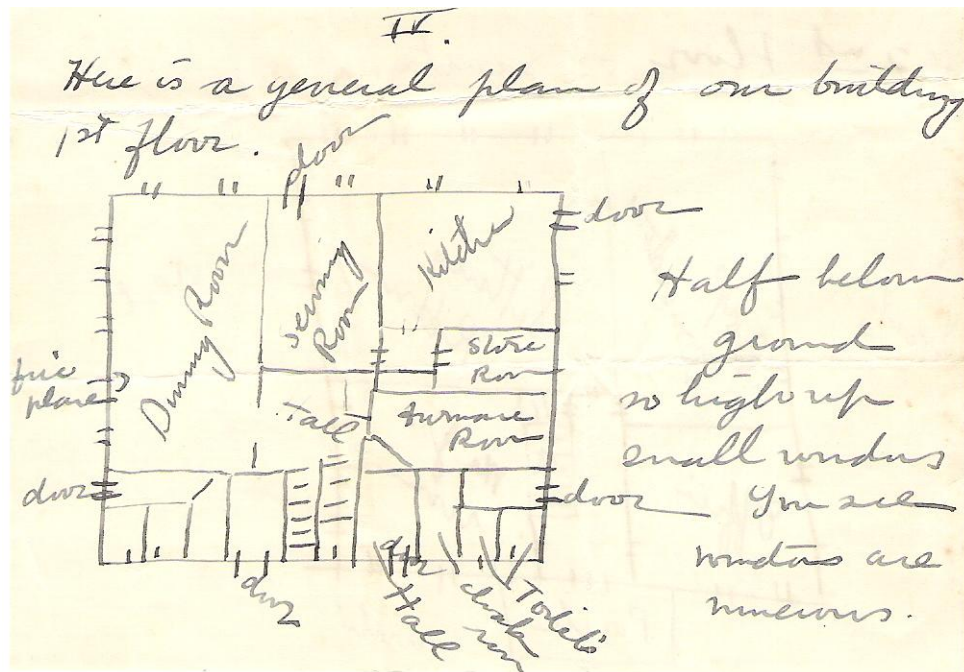 IV.
Here is a general plan of our building
1st floor.
door
door
Dining Room
Serving
Room
Kitchen
Store
Room
fire
place
Hall
Furnace
Room
door
door
door
door
Hall
cloak
rm
Toilets
Half below
ground
so high up
small windows
You see
windows are
numerous.